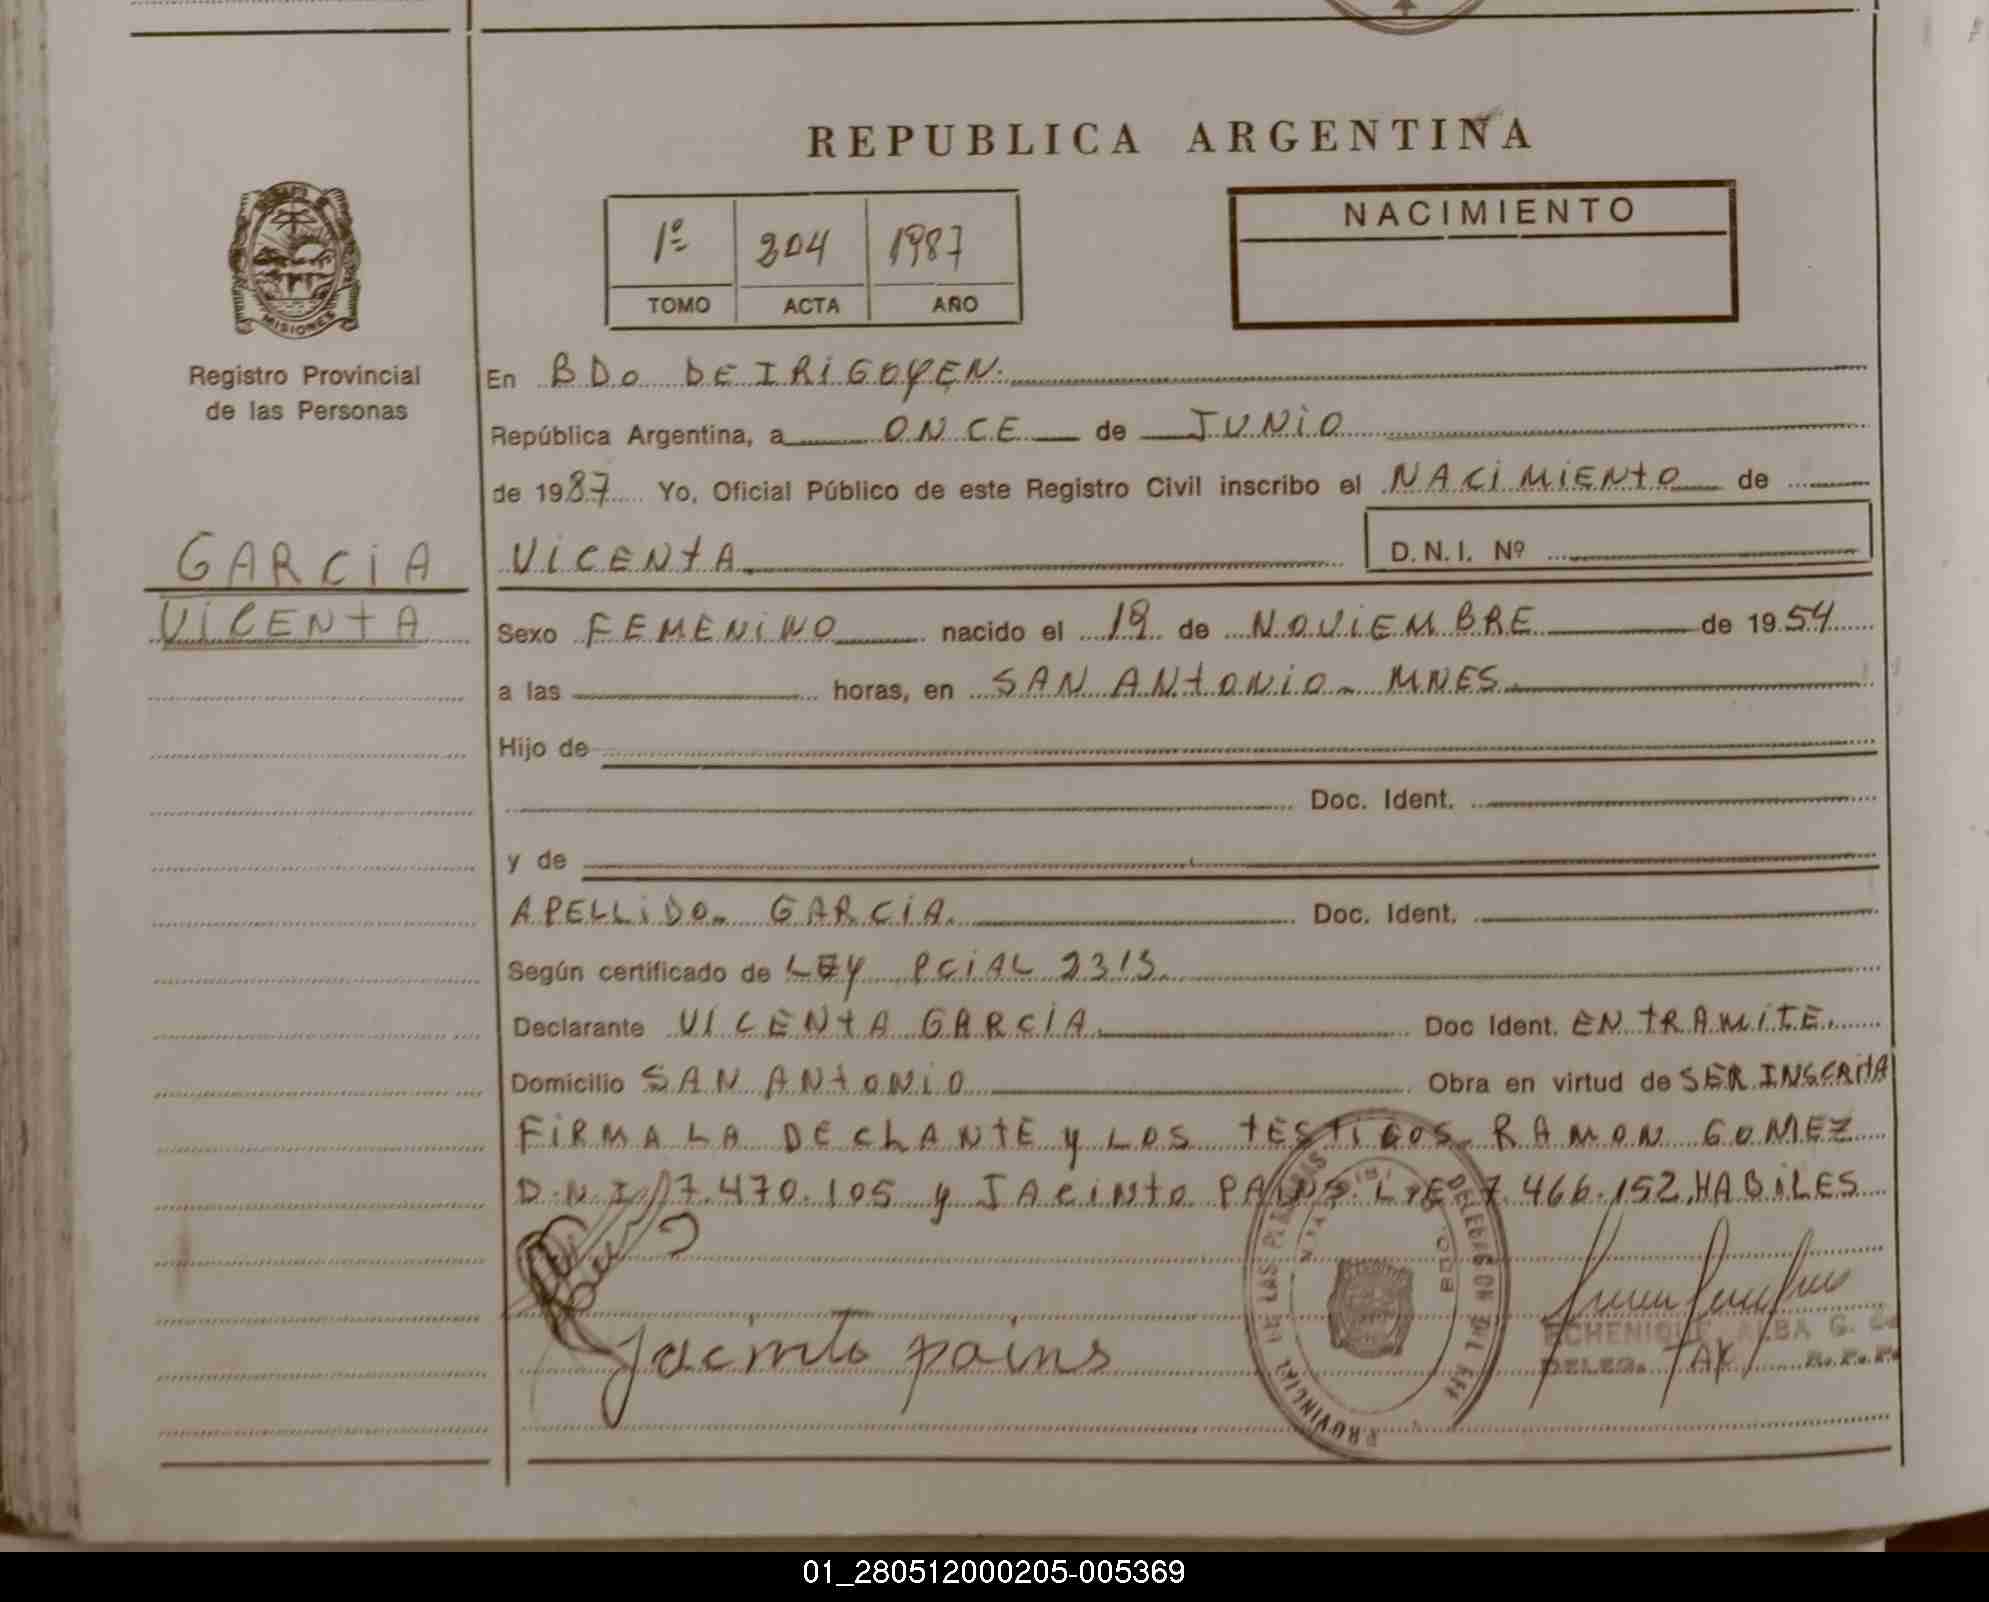 REPUBLICA ARGENTINA
1º 304 1987
TOMO ACTA AÑO
NACIMIENTO
MISIONES
Registro Provincial
de las Personas
En BDo DE IRiGOYEN.
República Argentina, a ONCE de JUNiO
de 1987 Yo, Oficial Público de este Registro Civil inscribo el NACiMiENtO de
GARCiA
ViCENtA
ViCENtA D.N.I. Nº
Sexo FEMENiNO nacido el 19 de NOViEMBRE de 1954
a las horas, en SAN ANtONiO - MNES.
Hijo de
Doc. Ident.
y de
APELLiDO. GARCiA. Doc. Ident.
Según certificado de LEY PCiAL 2313.
Declarante ViCENtA GARCiA. Doc Ident. EN tRAMitE.
Domicilio SAN ANtONiO Obra en virtud de SER INSCRitA
FiRMA LA DECLANtE y LOS tEStiGOS. RAMON GOMEZ
D.N.I. 7.470.105 y JACiNtO PAiNS. L.E 7.466.152, HABiLES
Jacinto pains
PROVINCIAL DE LAS DELEGACION
ECHENIQUE ALBA G.
DELEG.
01_280512000205-005369